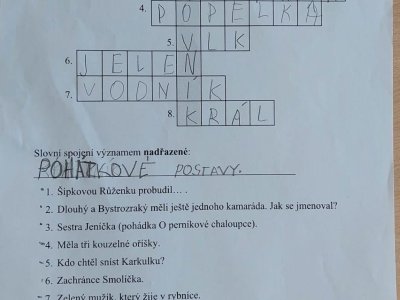 4. POPELKA
5. VLK
6. JELEN
7. VODNÍK
8. KRÁL
Slovní spojení významem nadřazené:
POHÁTKOVÉ POSTAVY.
1. Šípkovou Růženku probudil… .
2. Dlouhý a Bystrozraký měli ještě jednoho kamaráda. Jak se jmenoval?
3. Sestra Jeníčka (pohádka O perníkové chaloupce).
4. Měla tři kouzelné oříšky.
5. Kdo chtěl sníst Karkulku?
6. Zachránce Smolíčka.
7. Zelený mužík, který žije v rybníce.